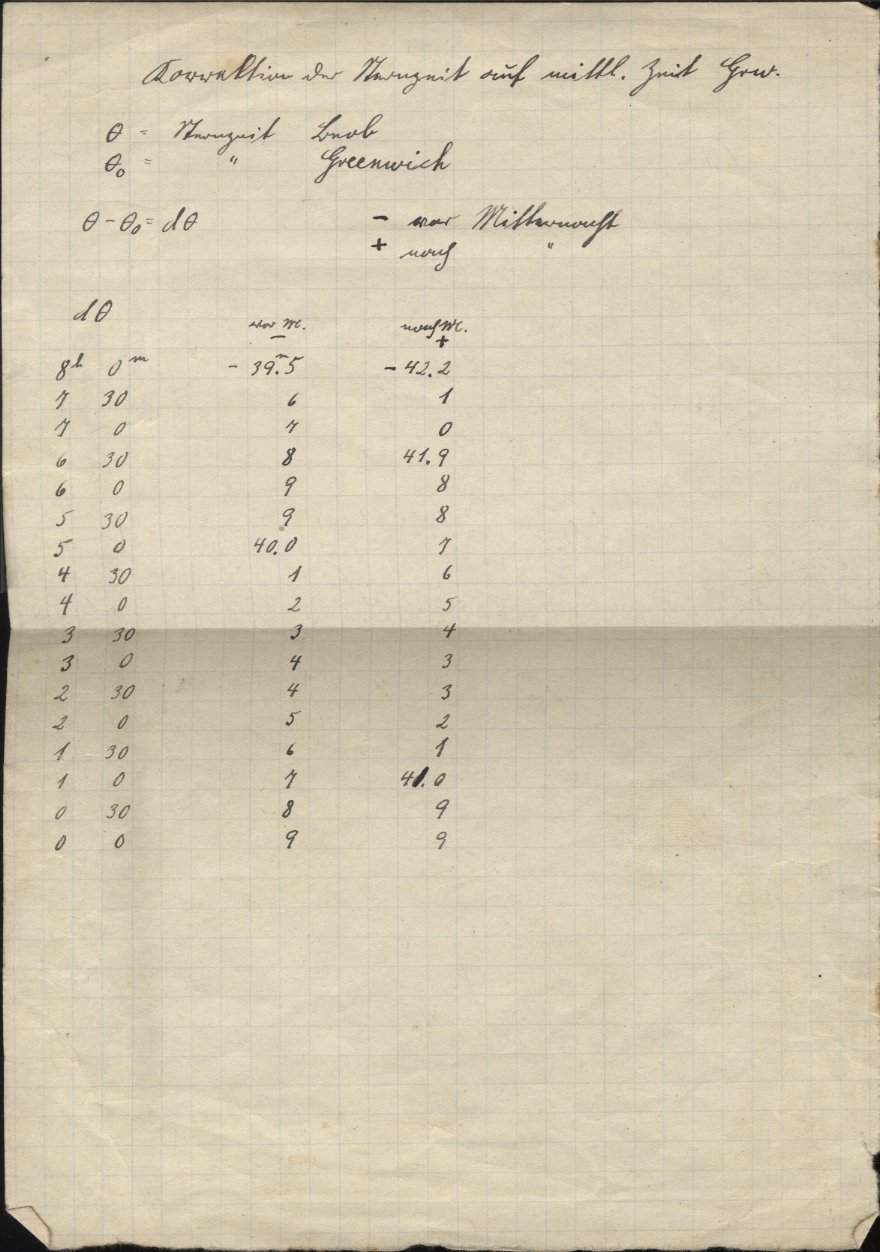 Korrektion der Sternzeit auf mittl. Zeit Grw.
θ = Sternzeit Beob
θ₀ = " Greenwich
θ - θ₀ = dθ - vor Mitternacht
+ nach "
dθ
vor M. nach M.
- +
8h 0m - 39.m5 - 42.2
7 30 6 1
7 0 7 0
6 30 8 41.9
6 0 9 8
5 30 9 8
5 0 40.0 7
4 30 1 6
4 0 2 5
3 30 3 4
3 0 4 3
2 30 4 3
2 0 5 2
1 30 6 1
1 0 7 41.0
0 30 8 9
0 0 9 9